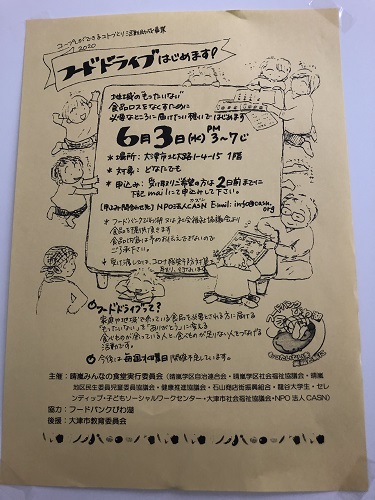 2020
フードドライブはじめます!
地域の"もったいない"
食品ロスをなくすために
必要なところに届けたい想いではじめます
6月3日(水) PM 3〜7じ
*場所: 大津市北大路1-4-15 1階
*対象: どなたでも
*申込み: 受け取りご希望の方は2日前までに
下記mailにて申込みして下さい。
NPO法人CASN Email: info@casn.org
*フードバンクびわ湖 又は社会福祉協議会より
食品を提供頂きます
了承下さい。
フードドライブって?
家庭や地域で余っている食品を必要とされる方に届ける
"もったいない"を"ありがとう"に変える
食べものが余っている人と食べものが足りない人をつなげる
活動です。
今後は毎回水曜日開催予定しています。
フードバンク
主催:晴嵐みんなの食堂実行委員会(晴嵐学区自治連合会・晴嵐学区社会福祉協議会・晴嵐
地区民生委員児童委員協議会・健康推進協議会・石山商店街振興組合・龍谷大学生・セレ
ンディップ・子どもソーシャルワークセンター・大津市社会福祉協議会・NPO法人CASN)
協力:フードバンクびわ湖
後援:大津市教育委員会